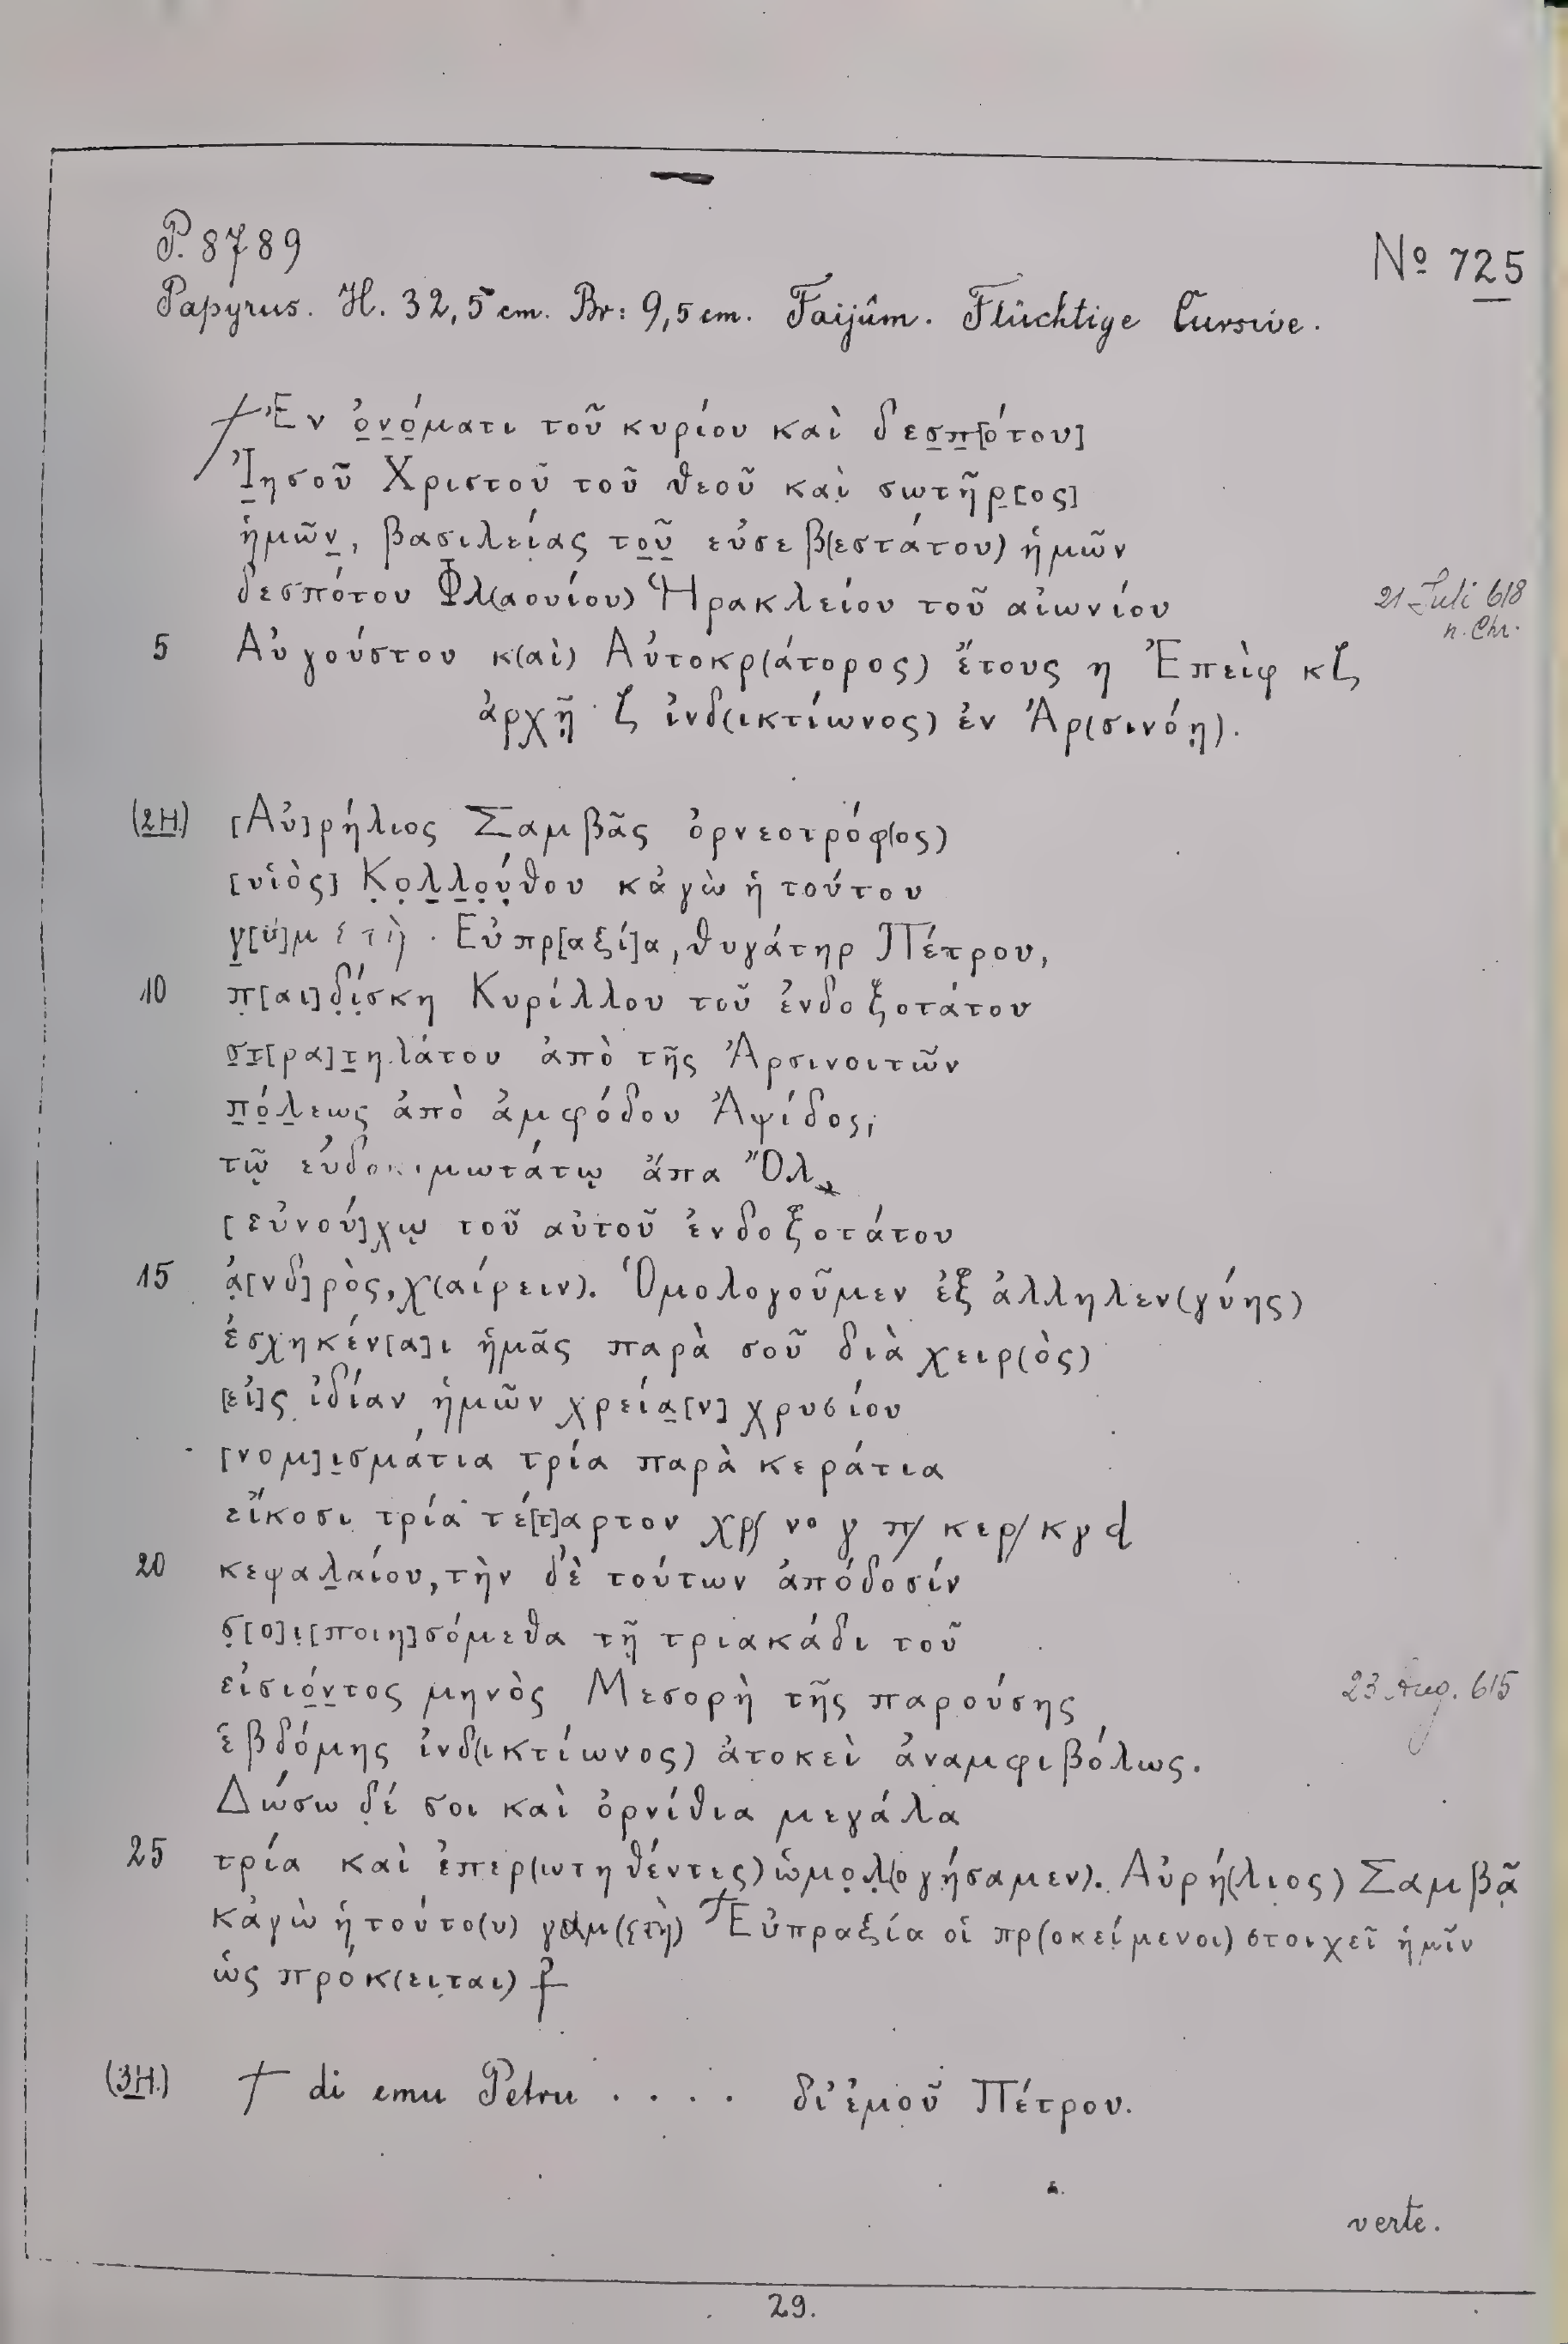 P. 8789
No 725
Papyrus. H. 32,5 cm. Br: 9,5 cm. Faijûm. Flüchtige Cursive.
† Ἐν ὀνόματι τοῦ κυρίου καὶ δεσπ[ότου]
Ἰησοῦ Χριστοῦ τοῦ θεοῦ καὶ σωτῆρ[ος]
ἡμῶν, βασιλείας τοῦ εὐσεβ(εστάτου) ἡμῶν
δεσπότου Φλ(αουίου) Ἡρακλείου τοῦ αἰωνίου
21 Juli 618
n. Chr.
5 Αὐγούστου κ(αὶ) Αὐτοκρ(άτορος) ἔτους η Ἐπεὶφ κζ
ἀρχῇ ζ ἰνδ(ικτίωνος) ἐν Ἀρ(σινόῃ).
(2H.) [Αὐ]ρήλιος Σαμβᾶς ὀρνεοτρόφ(ος)
[υἱὸς] Κ̣ο̣λ̣λ̣ο̣ύ̣θου κἀγὼ ἡ τούτου
γ[α]μετὴ Εὐπρ[αξί]α, θυγάτηρ Πέτρου,
10 π̣[αι]δ̣ί̣σκη Κυρίλλου τοῦ ἐνδοξοτάτου
στ[ρα]τηλάτου ἀπὸ τῆς Ἀρσινοιτῶν
πόλεως ἀπὸ ἀμφόδου Ἀψίδος,
τῷ εὐδοκιμωτάτῳ ἄπα Ὄλ
[εὐνού]χῳ τοῦ αὐτοῦ ἐνδοξοτάτου
15 ἀ̣[νδ]ρὸς, χ(αίρειν). Ὁμολογοῦμεν ἐξ ἀλληλεν(γύης)
ἐσχηκέν[α]ι ἡμᾶς παρὰ σοῦ διὰ χειρ(ὸς)
[εἰ]ς ἰδίαν ἡμῶν χρεία[ν] χρυσίου
[νομ]ισμάτια τρία παρὰ κεράτια
εἴκοσι τρία τέ[τ]αρτον χρ/ νο γ π/ κερ/ κγ d
20 κεφαλαίου, τὴν δὲ τούτων ἀπόδοσίν
σ̣[ο]ι̣ [ποιη]σόμεθα τῇ τριακάδι τοῦ
εἰσιόντος μηνὸς Μεσορὴ τῆς παρούσης
23 Aug. 615
ἑβδόμης ἰνδ(ικτίωνος) ἀτοκεὶ ἀναμφιβόλως.
Δώσω δ̣έ σοι καὶ ὀρνίθια μεγάλα
25 τρία καὶ ἐπερ(ωτηθέντες) ὡμο̣λ̣(ογήσαμεν). Αὐρή(λιος) Σαμβᾷ
κἀγὼ ἡ τούτο(υ) γαμ(ετὴ) † Εὐπραξία οἱ πρ(οκείμενοι) στοιχεῖ ἡμῖν
ὡς πρόκ(ειται) †
(3H.) † di emu Petru . . . . δι’ ἐμοῦ Πέτρου.
verte.
29.